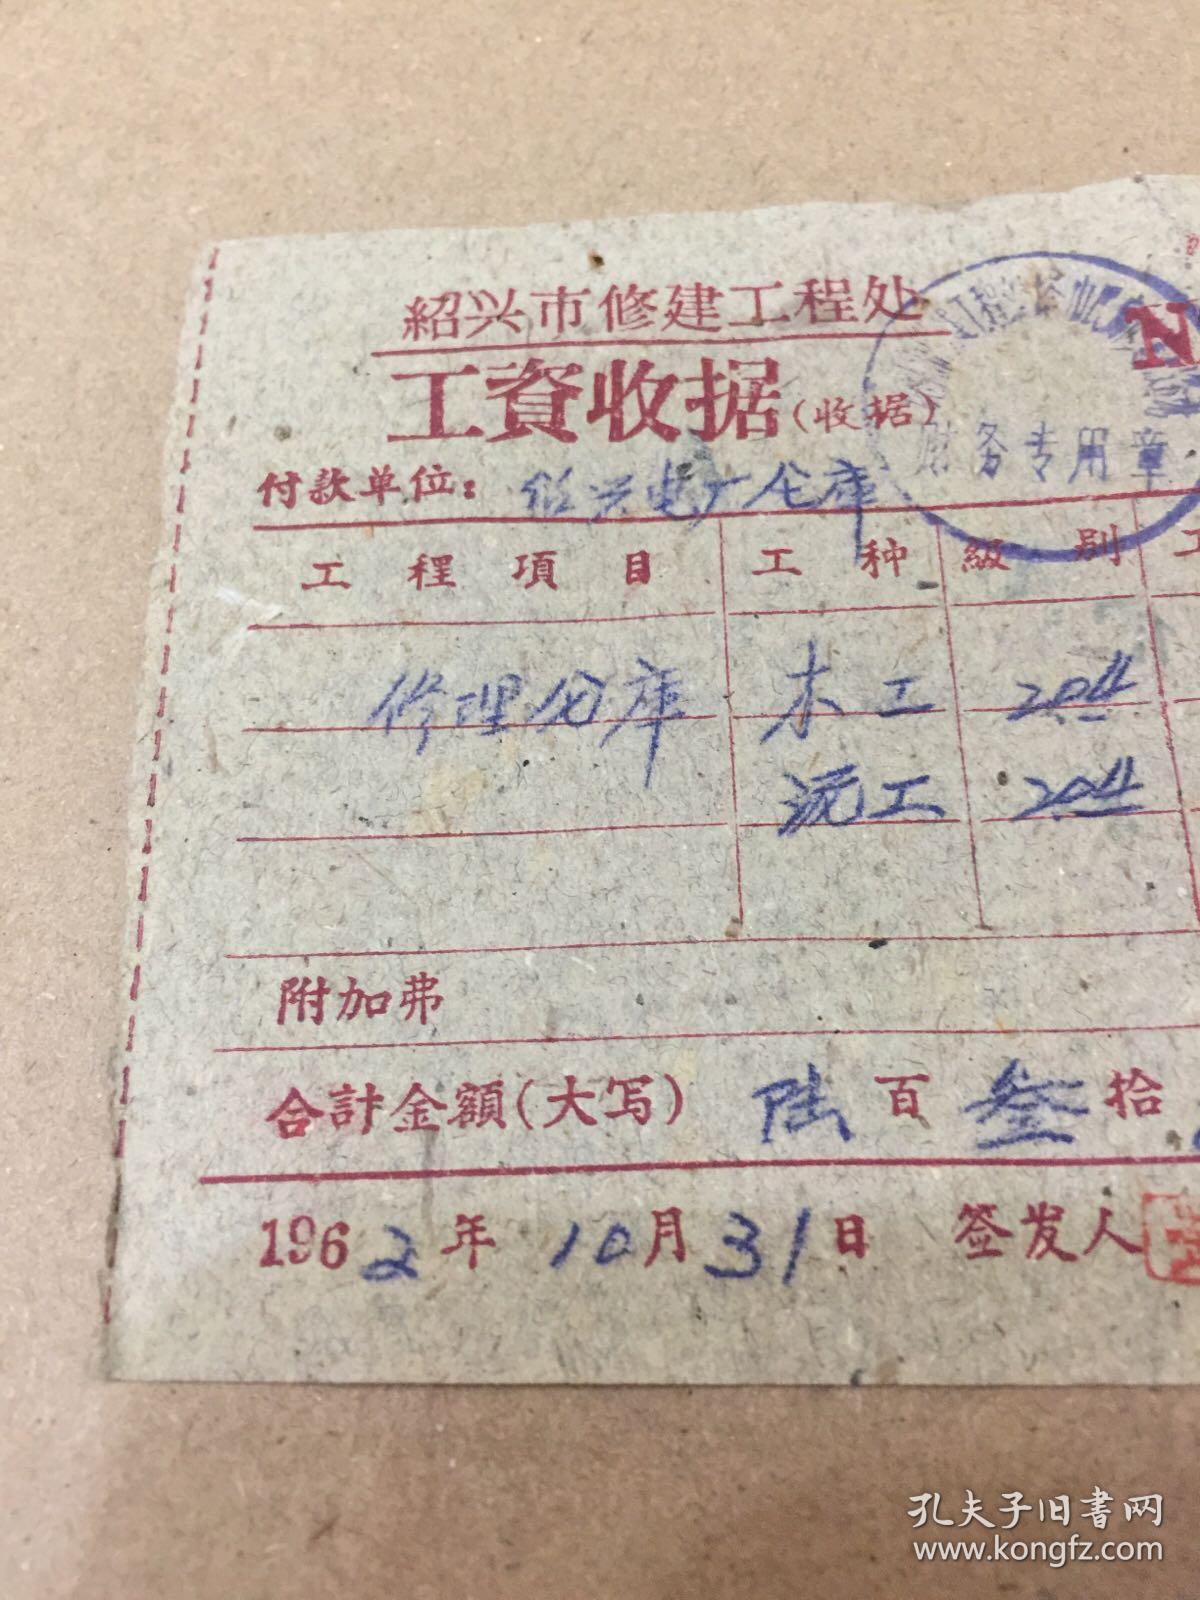 紹兴市修建工程处
工資收据(收据)
N
财务专用章
付款单位：绍兴电厂仓库
工程項目 工种 級別 工
修理仓库 木工
工
附加弗
合計金額(大写) 陆百叁拾
1962年10月31日 签发人
孔夫子旧書网
www.kongfz.com